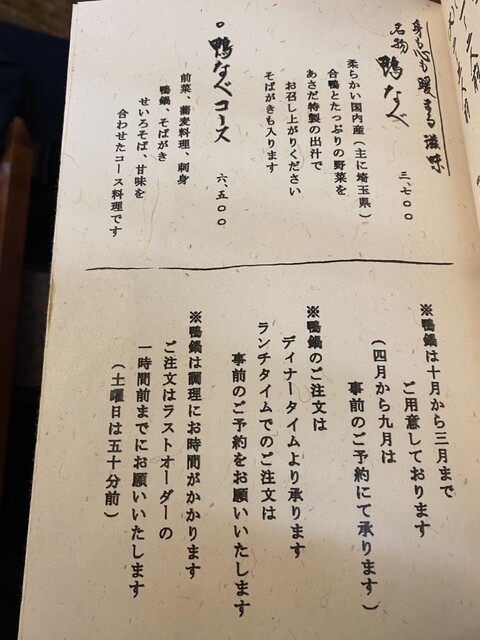 身も心も暖まる滋味
名物 鴨なべ 三、七〇〇
柔らかい国内産（主に埼玉県）
合鴨とたっぷりの野菜を
あさだ特製の出汁で
お召し上がりください
そばがきも入ります
鴨なべコース 六、五〇〇
前菜、蕎麦料理、刺身
鴨鍋、そばがき
せいろそば、甘味を
合わせたコース料理です
※鴨鍋は十月から三月まで
ご用意しております
（四月から九月は
事前のご予約にて承ります）
※鴨鍋のご注文は
ディナータイムより承ります
ランチタイムでのご注文は
事前のご予約をお願いいたします
※鴨鍋は調理にお時間がかかります
ご注文はラストオーダーの
一時間前までにお願いいたします
（土曜日は五十分前）